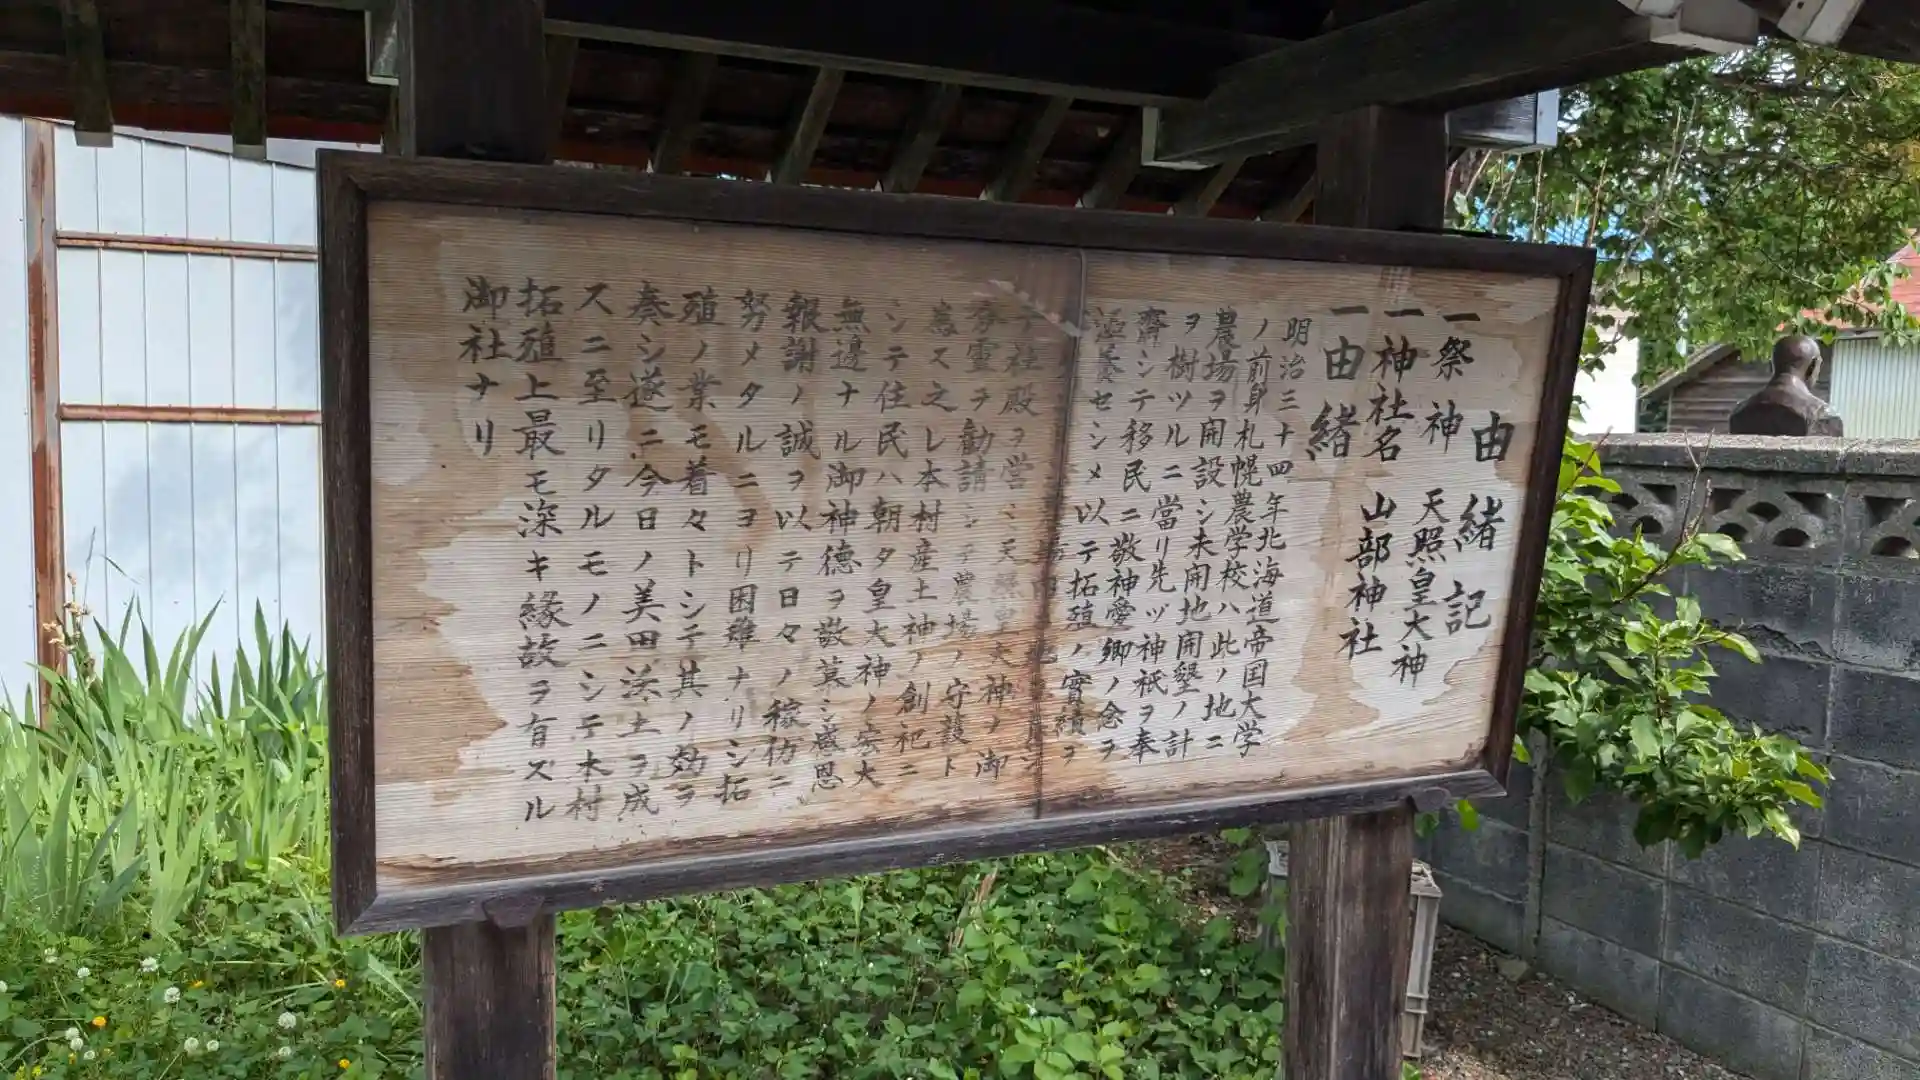 由緒記
一祭神 天照皇大神
一神社名 山部神社
一由緒
明治三十四年北海道帝国大学
ノ前身札幌農学校ハ此ノ地ニ
農場ヲ開設シ未開地開墾ノ計
ヲ樹ツルニ當リ先ヅ神祇ヲ奉
齋シテ移民ニ敬神愛郷ノ念ヲ
涵養セシメ以テ拓殖ノ實績ヲ
社殿ヲ営ミ天照皇大神ノ御
霊ヲ勧請シテ農場ノ守護ト
為ス之レ本村産土神ノ創祀ニ
シテ住民ハ朝夕皇大神ノ宏大
無邊ナル御神徳ヲ敬慕シ感恩
報謝ノ誠ヲ以テ日々ノ稼彷ニ
努メタルニヨリ困難ナリシ拓
殖ノ業モ着々トシテ其ノ効ヲ
奏シ遂ニ今日ノ美田沃土ヲ成
スニ至リタルモノニシテ本村
拓殖上最モ深キ縁故ヲ有ズル
御社ナリ